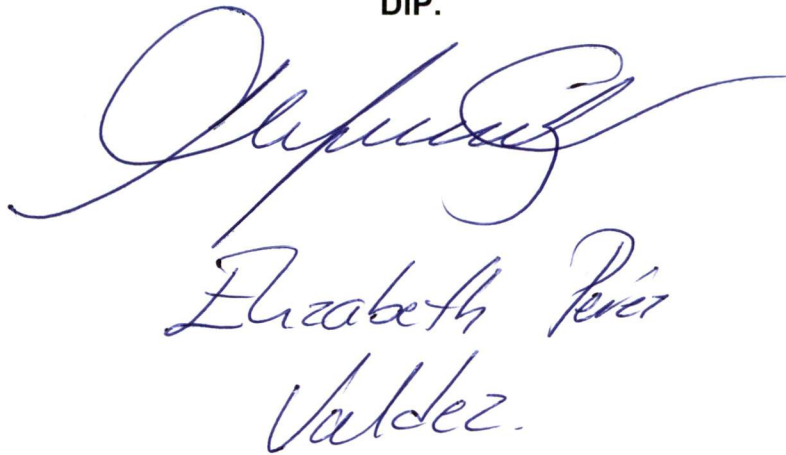 DIP.
Elizabeth Pérez
Valdez.